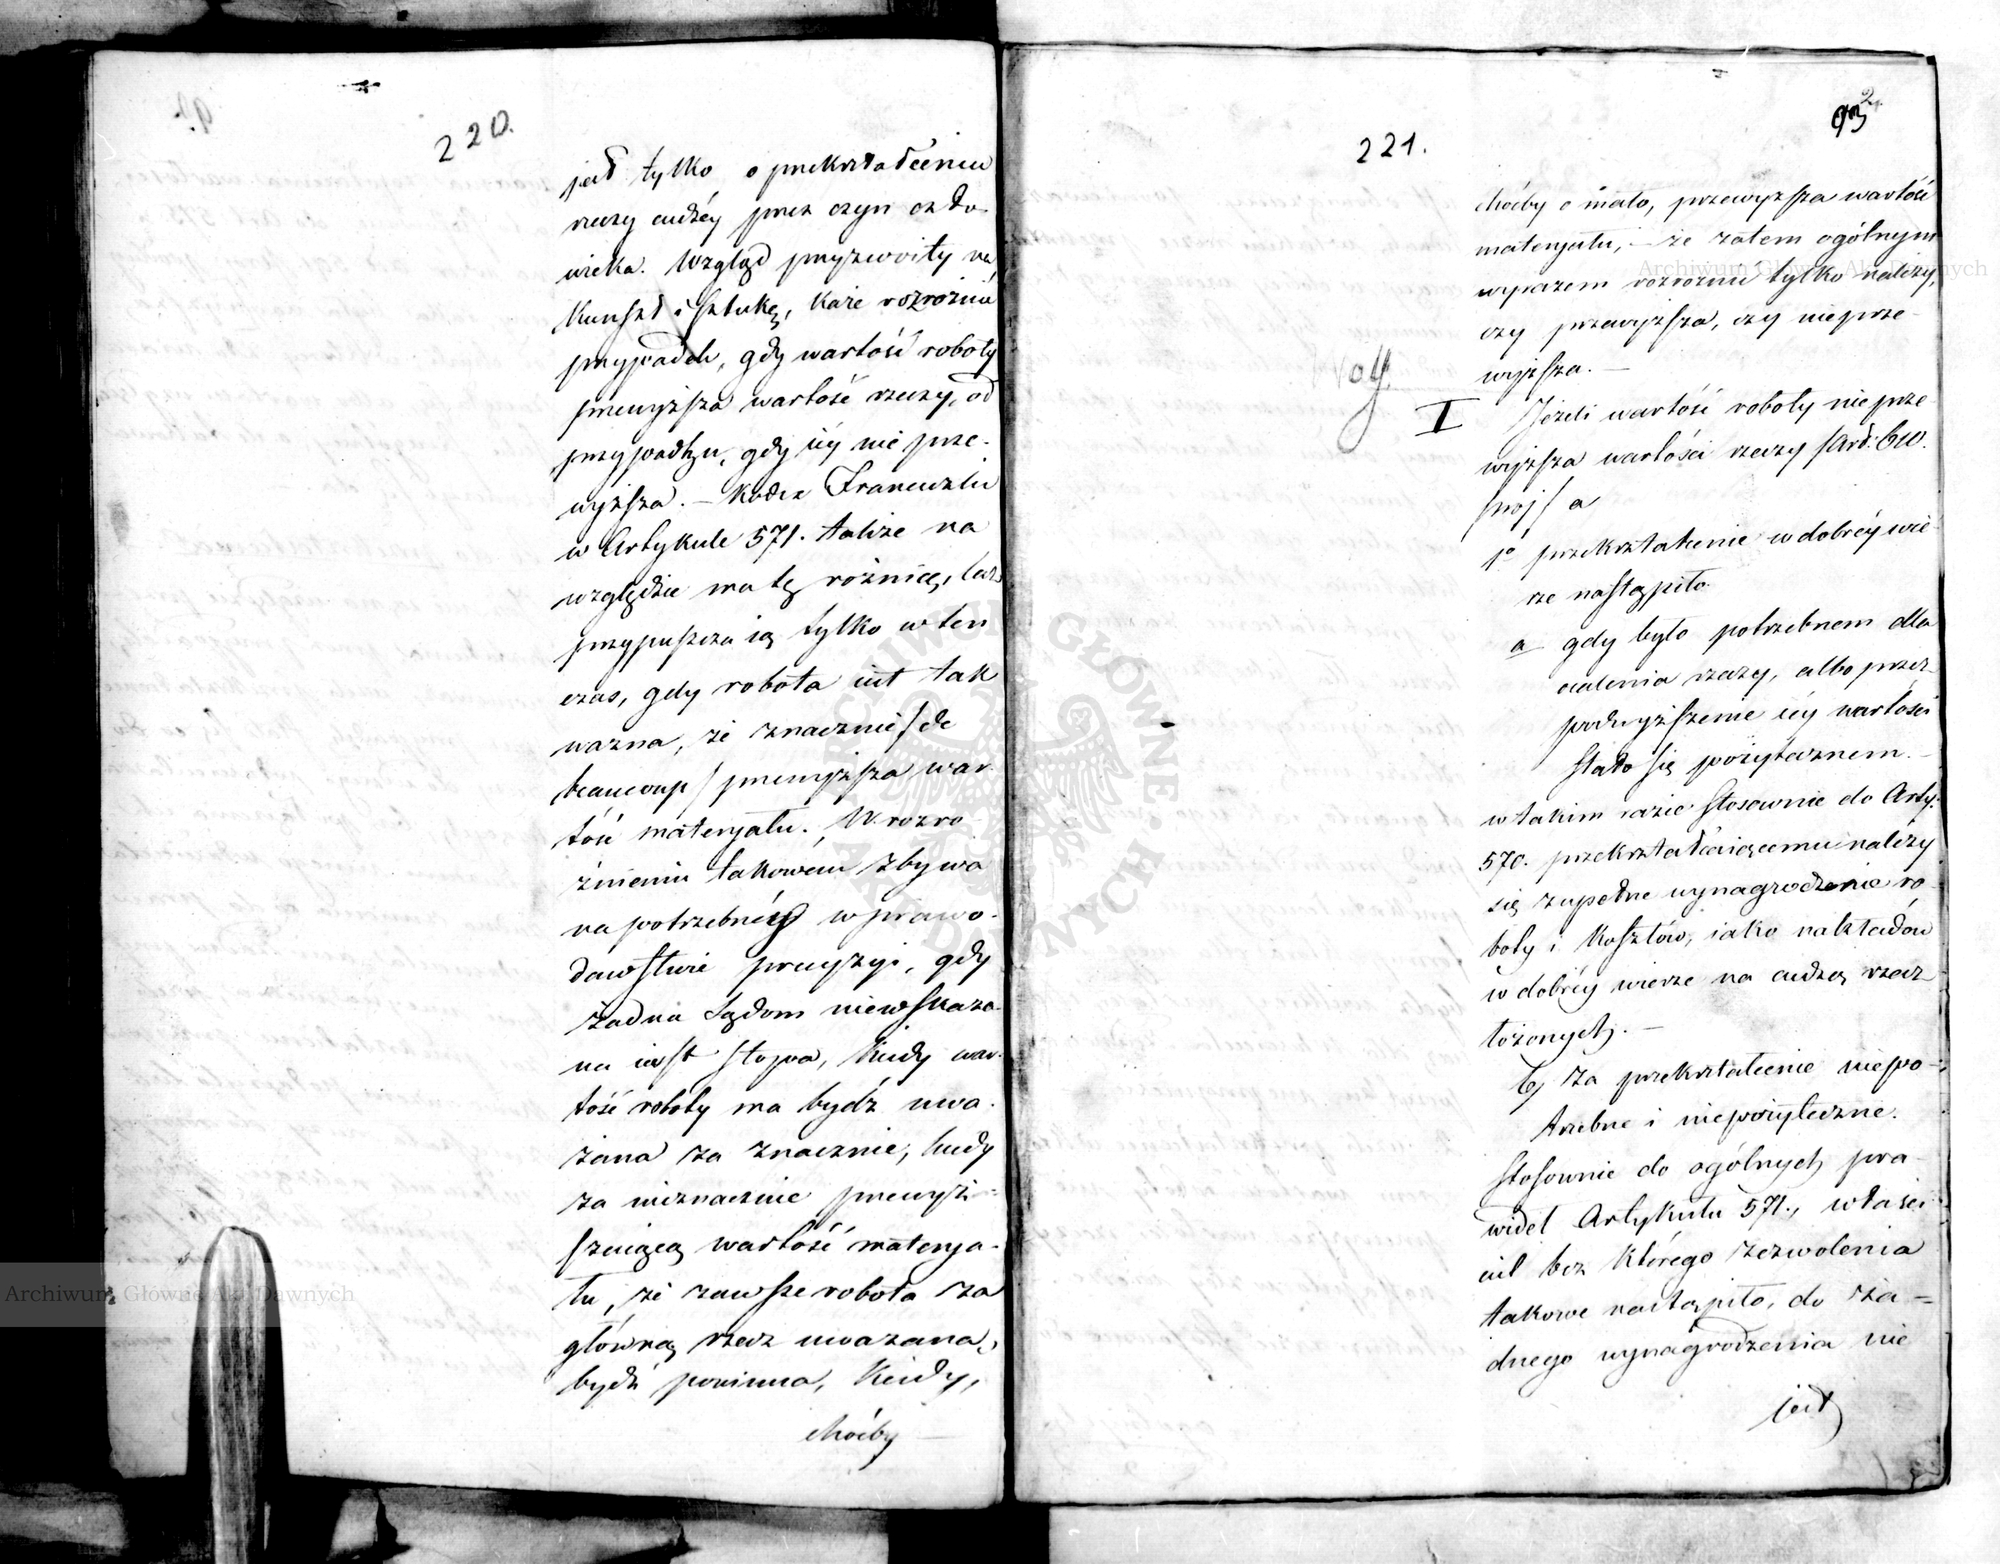 220.
jest tylko o przekształceniu
rzeczy cudzéy przez czyn czło-
wieka. Wzgląd przyzwoity na
Kunszt i sztukę, każe rozróżnić
przypadek, gdy wartość roboty
przewyższa wartość rzeczy, od
przypadku, gdy iéy nie prze-
wyższa. – Kodex Francuzki
w Artykule 571. także na
względzie ma tę różnicę, lecz
przypuszcza ią tylko w ten
czas, gdy robota iest tak
ważna, że znacznie /de
beaucoup/ przewyższa war-
tość materyału. W rozró-
żnieniu takowem zbywa
na potrzebnéy w prawo-
dawstwie precyzyi, gdy
żadna Sądom niewskaza-
na iest stopa, kiedy war-
tość roboty ma bydź uwa-
żana za znacznie, kiedy
za nieznacznie przewyż-
szaiącą wartość materya-
łu, że zawsze robota za
główną rzecz uważana
bydź powinna, kiedy,
choćby –
93
221.
choćby o mało, przewyższa wartość
materyału, – że zatem ogólnym
wyrazem rozróżnić tylko należy,
czy przewyższa, czy nie prze-
wyższa. –
I Jeżeli wartość roboty nie prze-
wyższa wartości rzeczy /Art: 610.
proj/ a
1o przekształcenie w dobréy wie-
rze nastąpiło
a gdy było potrzebnem dla
ocalenia rzeczy, albo przez
podwyższenie iéy wartości
stało się pożytecznem. –
w takim razie stosownie do Arty:
570. przekształcaiącemu należy
się zupełne wynagrodzenie ro-
boty i kosztów, iako nakładów
w dobréy wierze na cudzą rzecz
łożonych. –
b, za przekształcenie niepo-
trzebne i niepożyteczne.
stosownie do ogólnych pra-
wideł Artykułu 571., właści-
ciel bez którego zezwolenia
takowe nastąpiło, do ża-
dnego wynagrodzenia nie
jest
Archiwum Główne Akt Dawnych
Archiwum Główne Akt Dawnych
ARCHIWUM GŁÓWNE AKT DAWNYCH